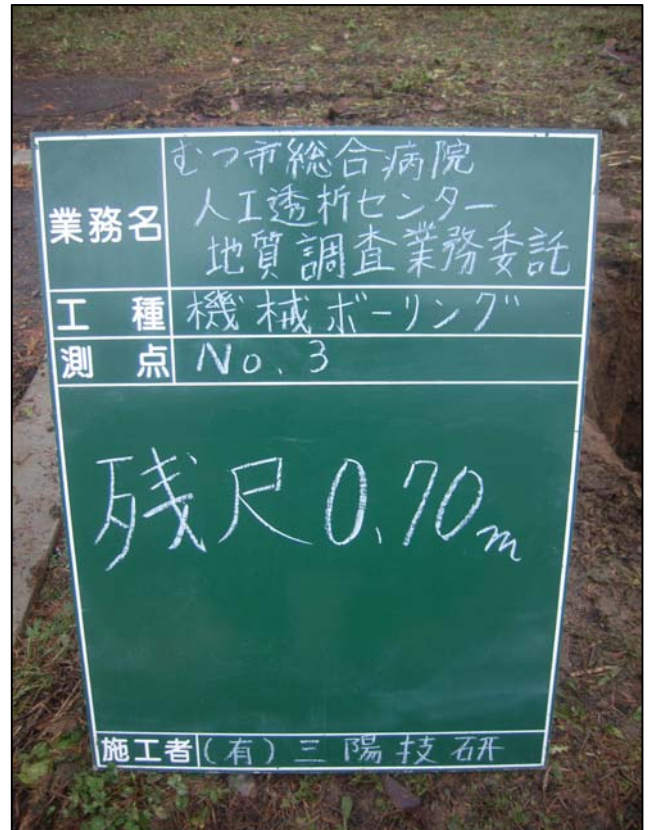 業務名
むつ市総合病院
人工透析センター
地質調査業務委託
工種 機械ボーリング
測点 No.3
残尺0.70m
施工者 (有)三陽技研